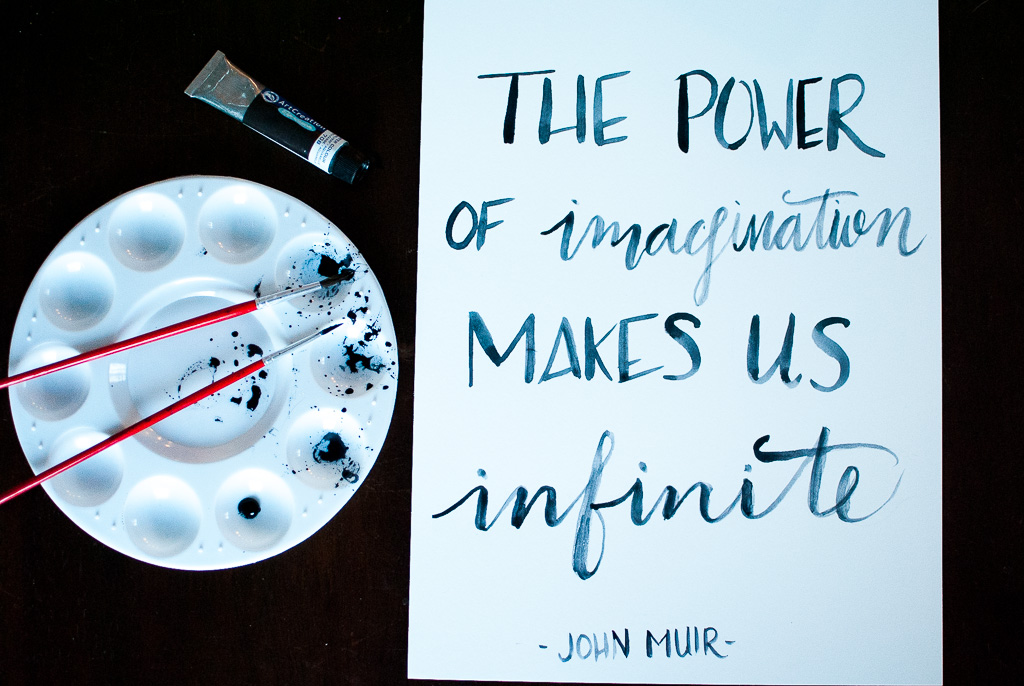 ArtCreation
THE POWER
OF imagination
MAKES US
infinite
-JOHN MUIR-